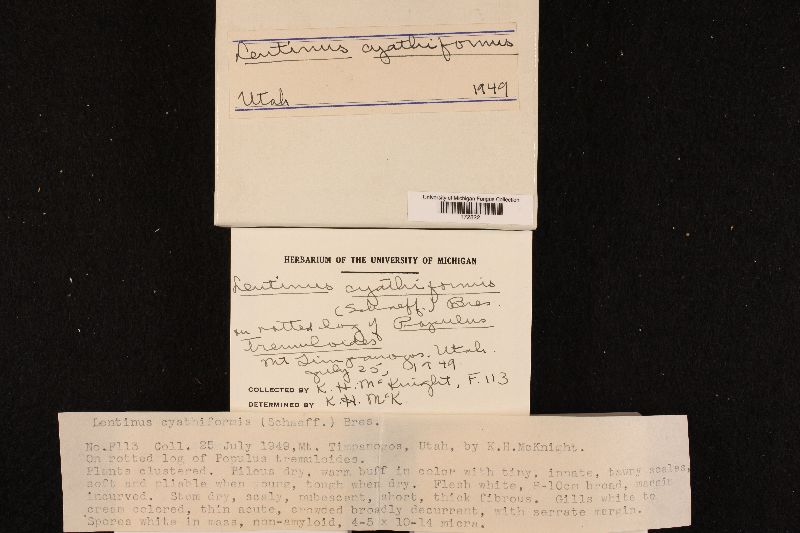 Lentinus cyathiformis
Utah 1949
University of Michigan Fungus Collection
172322
HERBARIUM OF THE UNIVERSITY OF MICHIGAN
Lentinus cyathiformis
(Schaeff.) Bres.
on rotted log of Populus
tremuloides
Mt Timpanogos, Utah.
July 25, 1949
COLLECTED BY K. H. McKnight, F. 113
DETERMINED BY K. H. McK
Lentinus cyathiformis (Schaeff.) Bres.
No.F113 Coll. 25 July 1949,Mt. Timpanogos, Utah, by K.H.McKnight.
On rotted log of Populus tremuloides.
Plants clustered. Pileus dry, warm buff in color with tiny, innate, tawny scales,
soft and pliable when young, tough when dry. Flesh white, 8-10cm broad, margin
incurved. Stem dry, scaly, pubescent, short, thick fibrous. Gills white to
cream colored, thin acute, crowded broadly decurrent, with serrate margin.
Spores white in mass, non-amyloid, 4-5 x 10-14 micra.